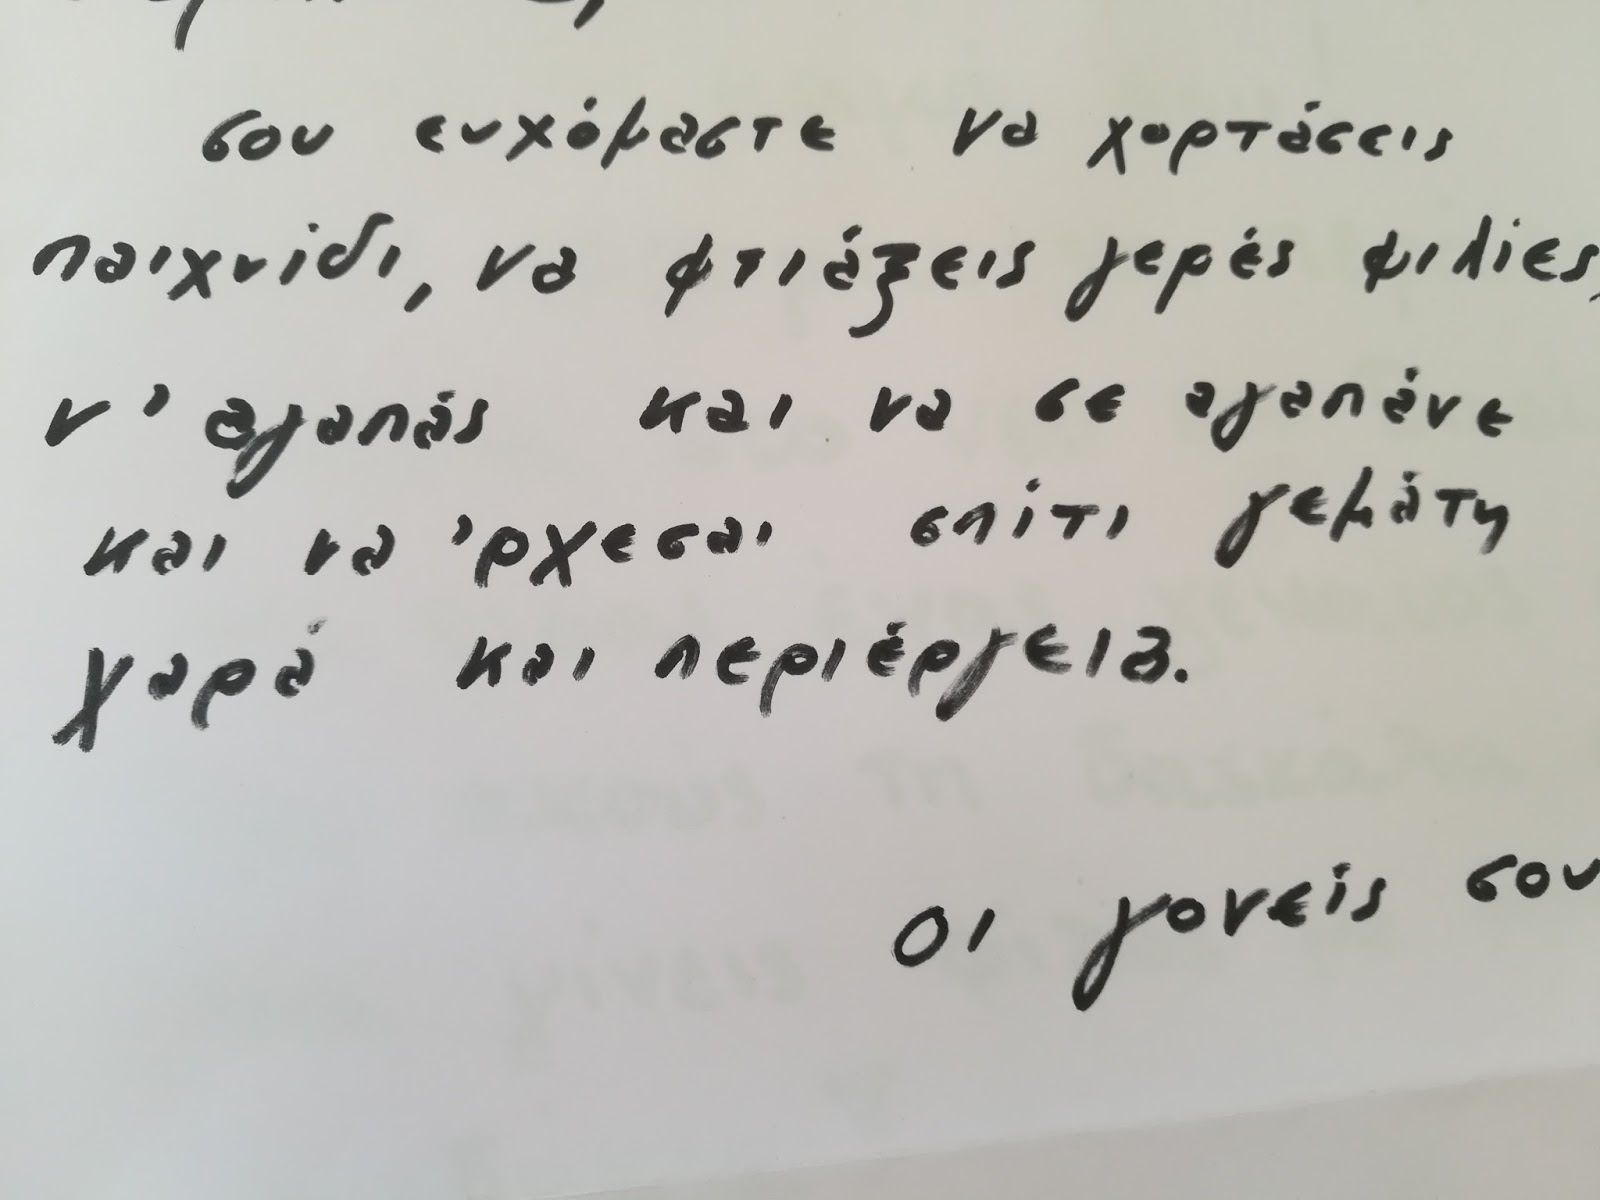 σου ευχόμαστε να χορτάσεις
παιχνίδι, να φτιάξεις γερές φιλίες,
ν' αγαπάς και να σε αγαπάνε
και να 'ρχεσαι σπίτι γεμάτη
χαρά και περιέργεια.
οι γονείς σου